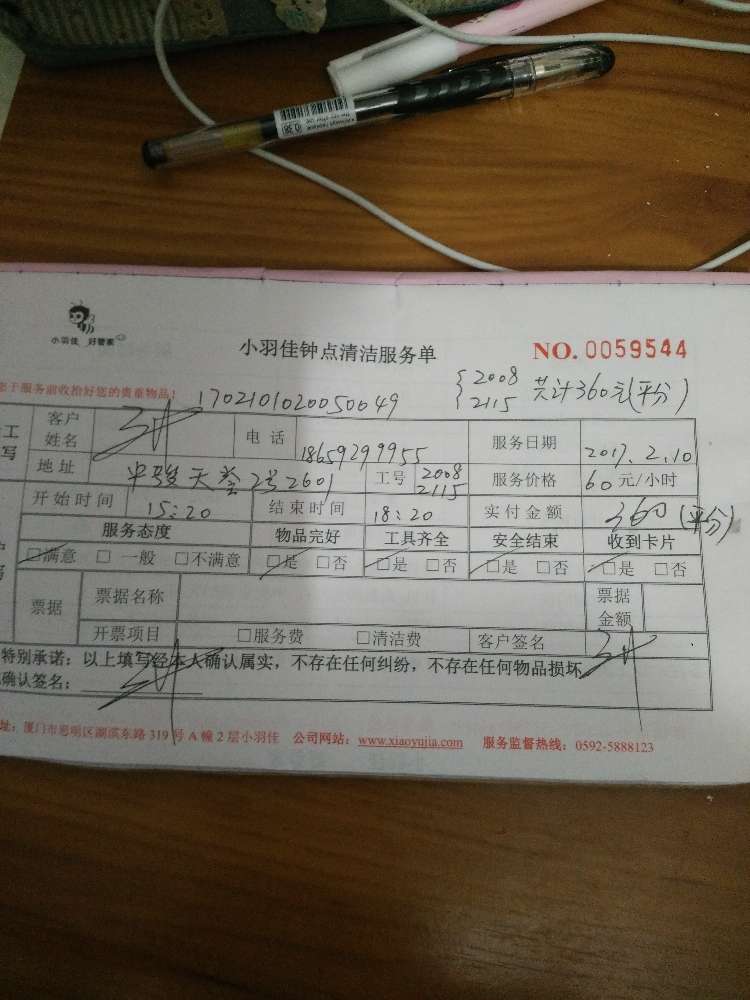 小羽佳 好管家
小羽佳钟点清洁服务单 NO. 0059544
于服务前收拾好您的贵重物品!
1702101020050049 { 2008 2115 共计360元(平分)
工 客户姓名 电话 18659299955 服务日期 2017.2.10
写 地址 中骏天荃2号2601 工号 2008 2115 服务价格 60元/小时
开始时间 15:20 结束时间 18:20 实付金额 360(平分)
服务态度 物品完好 工具齐全 安全结束 收到卡片
□满意 □一般 □不满意 □是 □否 □是 □否 □是 □否 □是 □否
票据 票据名称 票据金额
开票项目 □服务费 □清洁费 客户签名
特别承诺：以上填写经本人确认属实，不存在任何纠纷，不存在任何物品损坏
确认签名：
址：厦门市思明区湖滨东路319号A幢2层小羽佳 公司网站：www.xiaoyujia.com 服务监督热线：0592-5888123